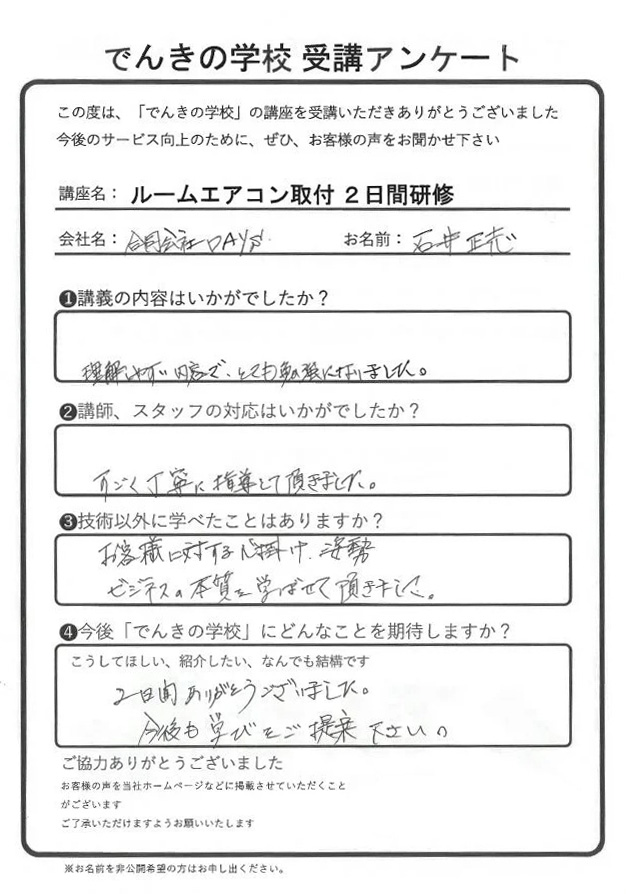 でんきの学校 受講アンケート
この度は、「でんきの学校」の講座を受講いただきありがとうございました
今後のサービス向上のために、ぜひ、お客様の声をお聞かせ下さい
講座名： ルームエアコン取付 2日間研修
会社名： 合同会社DAYS お名前： 石井 正
❶講義の内容はいかがでしたか？
理解しやすい内容で、とても勉強になりました。
❷講師、スタッフの対応はいかがでしたか？
すごく丁寧に指導して頂きました。
❸技術以外に学べたことはありますか？
お客様に対する心掛け、姿勢
ビジネスの本質を学ばせて頂きました。
❹今後「でんきの学校」にどんなことを期待しますか？
こうしてほしい、紹介したい、なんでも結構です
2日間ありがとうございました。
今後も学びをご提案下さい
ご協力ありがとうございました
お客様の声を当社ホームページなどに掲載させていただくこと
がございます
ご了承いただけますようお願いいたします
※お名前を非公開希望の方はお申し出ください。